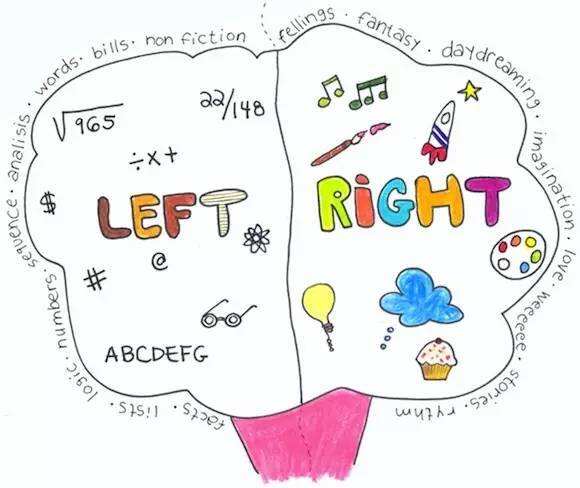 fellings · fantasy · daydreaming · imagination · love · weeeeee · stories · rythm
facts · lists · logic · numbers · sequence · analisis · words · bills · non fiction
√965
22/148
÷x+
$
LEFT
RiGHT
@
#
ABCDEFG